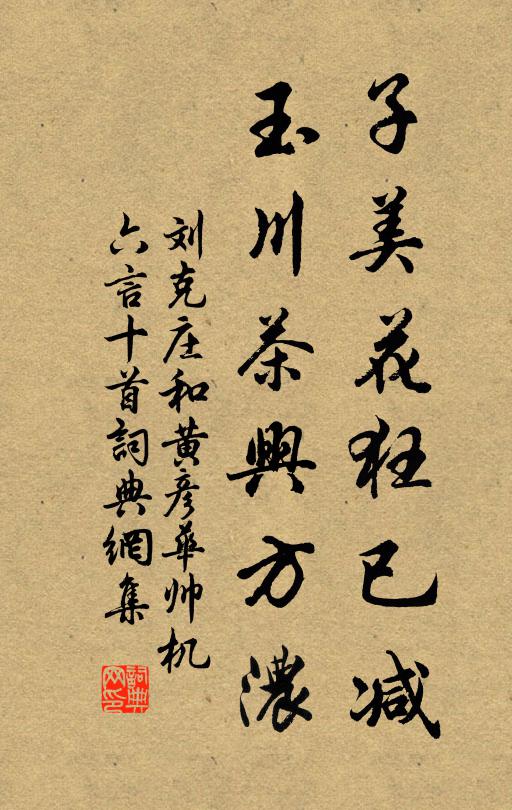 子美花狂已减
玉川茶興方濃
刘克庄和黄彦華帅机
六言十首詞典網集
詞典
网印